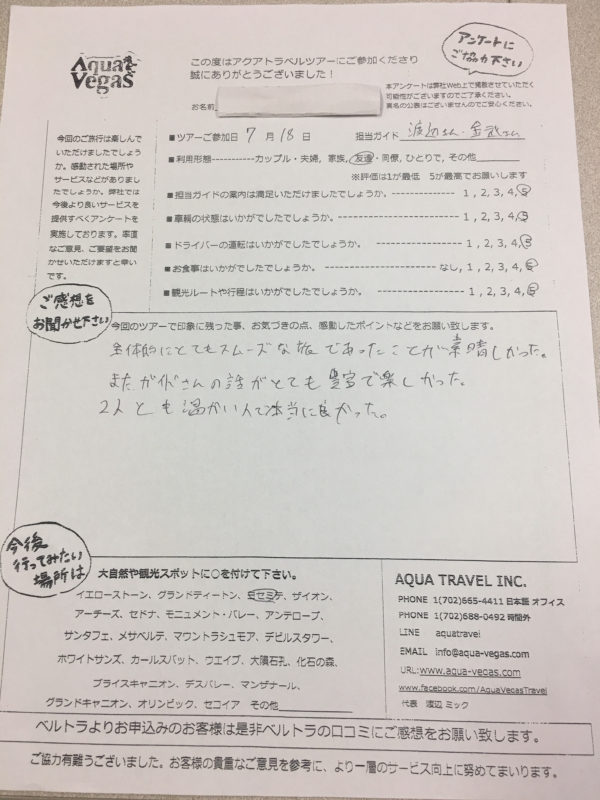 Aqua Vegas
この度はアクアトラベルツアーにご参加くださり
誠にありがとうございました！
アンケートに
ご協力下さい
本アンケートは弊社Web上で掲載させていただく
可能性がございますのでご了承ください。
実名の公表はございませんのでご安心ください。
お名前
今回のご旅行は楽しんで
いただけましたでしょう
か。感動された場所や
サービスなどがありまし
たでしょうか。弊社では
今後より良いサービスを
提供すべくアンケートを
実施しております。率直
なご意見、ご要望をお聞
かせいただけますと幸い
です。
■ツアーご参加日 7 月 18 日 担当ガイド 渡辺さん・金武さん
■利用形態-----------カップル・夫婦, 家族, 友達・同僚, ひとりで, その他
※評価は1が最低 5が最高でお願いします
■担当ガイドの案内は満足いただけましたでしょうか。------------ 1 , 2, 3, 4, 5
■車輌の状態はいかがでしたでしょうか。------------------ 1 , 2, 3, 4, 5
■ドライバーの運転はいかがでしたでしょうか。 ------------------ 1 , 2, 3, 4, 5
■お食事はいかがでしたでしょうか。------------------ なし, 1 , 2, 3, 4, 5
■観光ルートや行程はいかがでしたでしょうか。------------------ 1 , 2, 3, 4, 5
ご感想を
お聞かせ下さい
今回のツアーで印象に残った事、お気づきの点、感動したポイントなどをお願い致します。
全体的にとてもスムーズな旅であったことが素晴しかった。
またガイドさんの話がとても豊富で楽しかった。
2人とも温かい人で本当に良かった。
今後
行ってみたい
場所は
大自然や観光スポットに○を付けて下さい。
イエローストーン、グランドティートン、ヨセミテ、ザイオン、
アーチーズ、セドナ、モニュメント・バレー、アンテロープ、
サンタフェ、メサベルデ、マウントラシュモア、デビルスタワー、
ホワイトサンズ、カールスバット、ウエイブ、大隕石孔、化石の森、
ブライスキャニオン、デスバレー、マンザナール、
グランドキャニオン、オリンピック、セコイア その他
AQUA TRAVEL INC.
PHONE 1(702)665-4411 日本語 オフィス
PHONE 1(702)688-0492 時間外
LINE aquatravel
EMAIL info@aqua-vegas.com
URL:www.aqua-vegas.com
www.facebook.com/AquaVegasTravel
代表 渡辺 ミック
ベルトラよりお申込みのお客様は是非ベルトラの口コミにご感想をお願い致します。
ご協力有難うございました。お客様の貴重なご意見を参考に、より一層のサービス向上に努めてまいります。